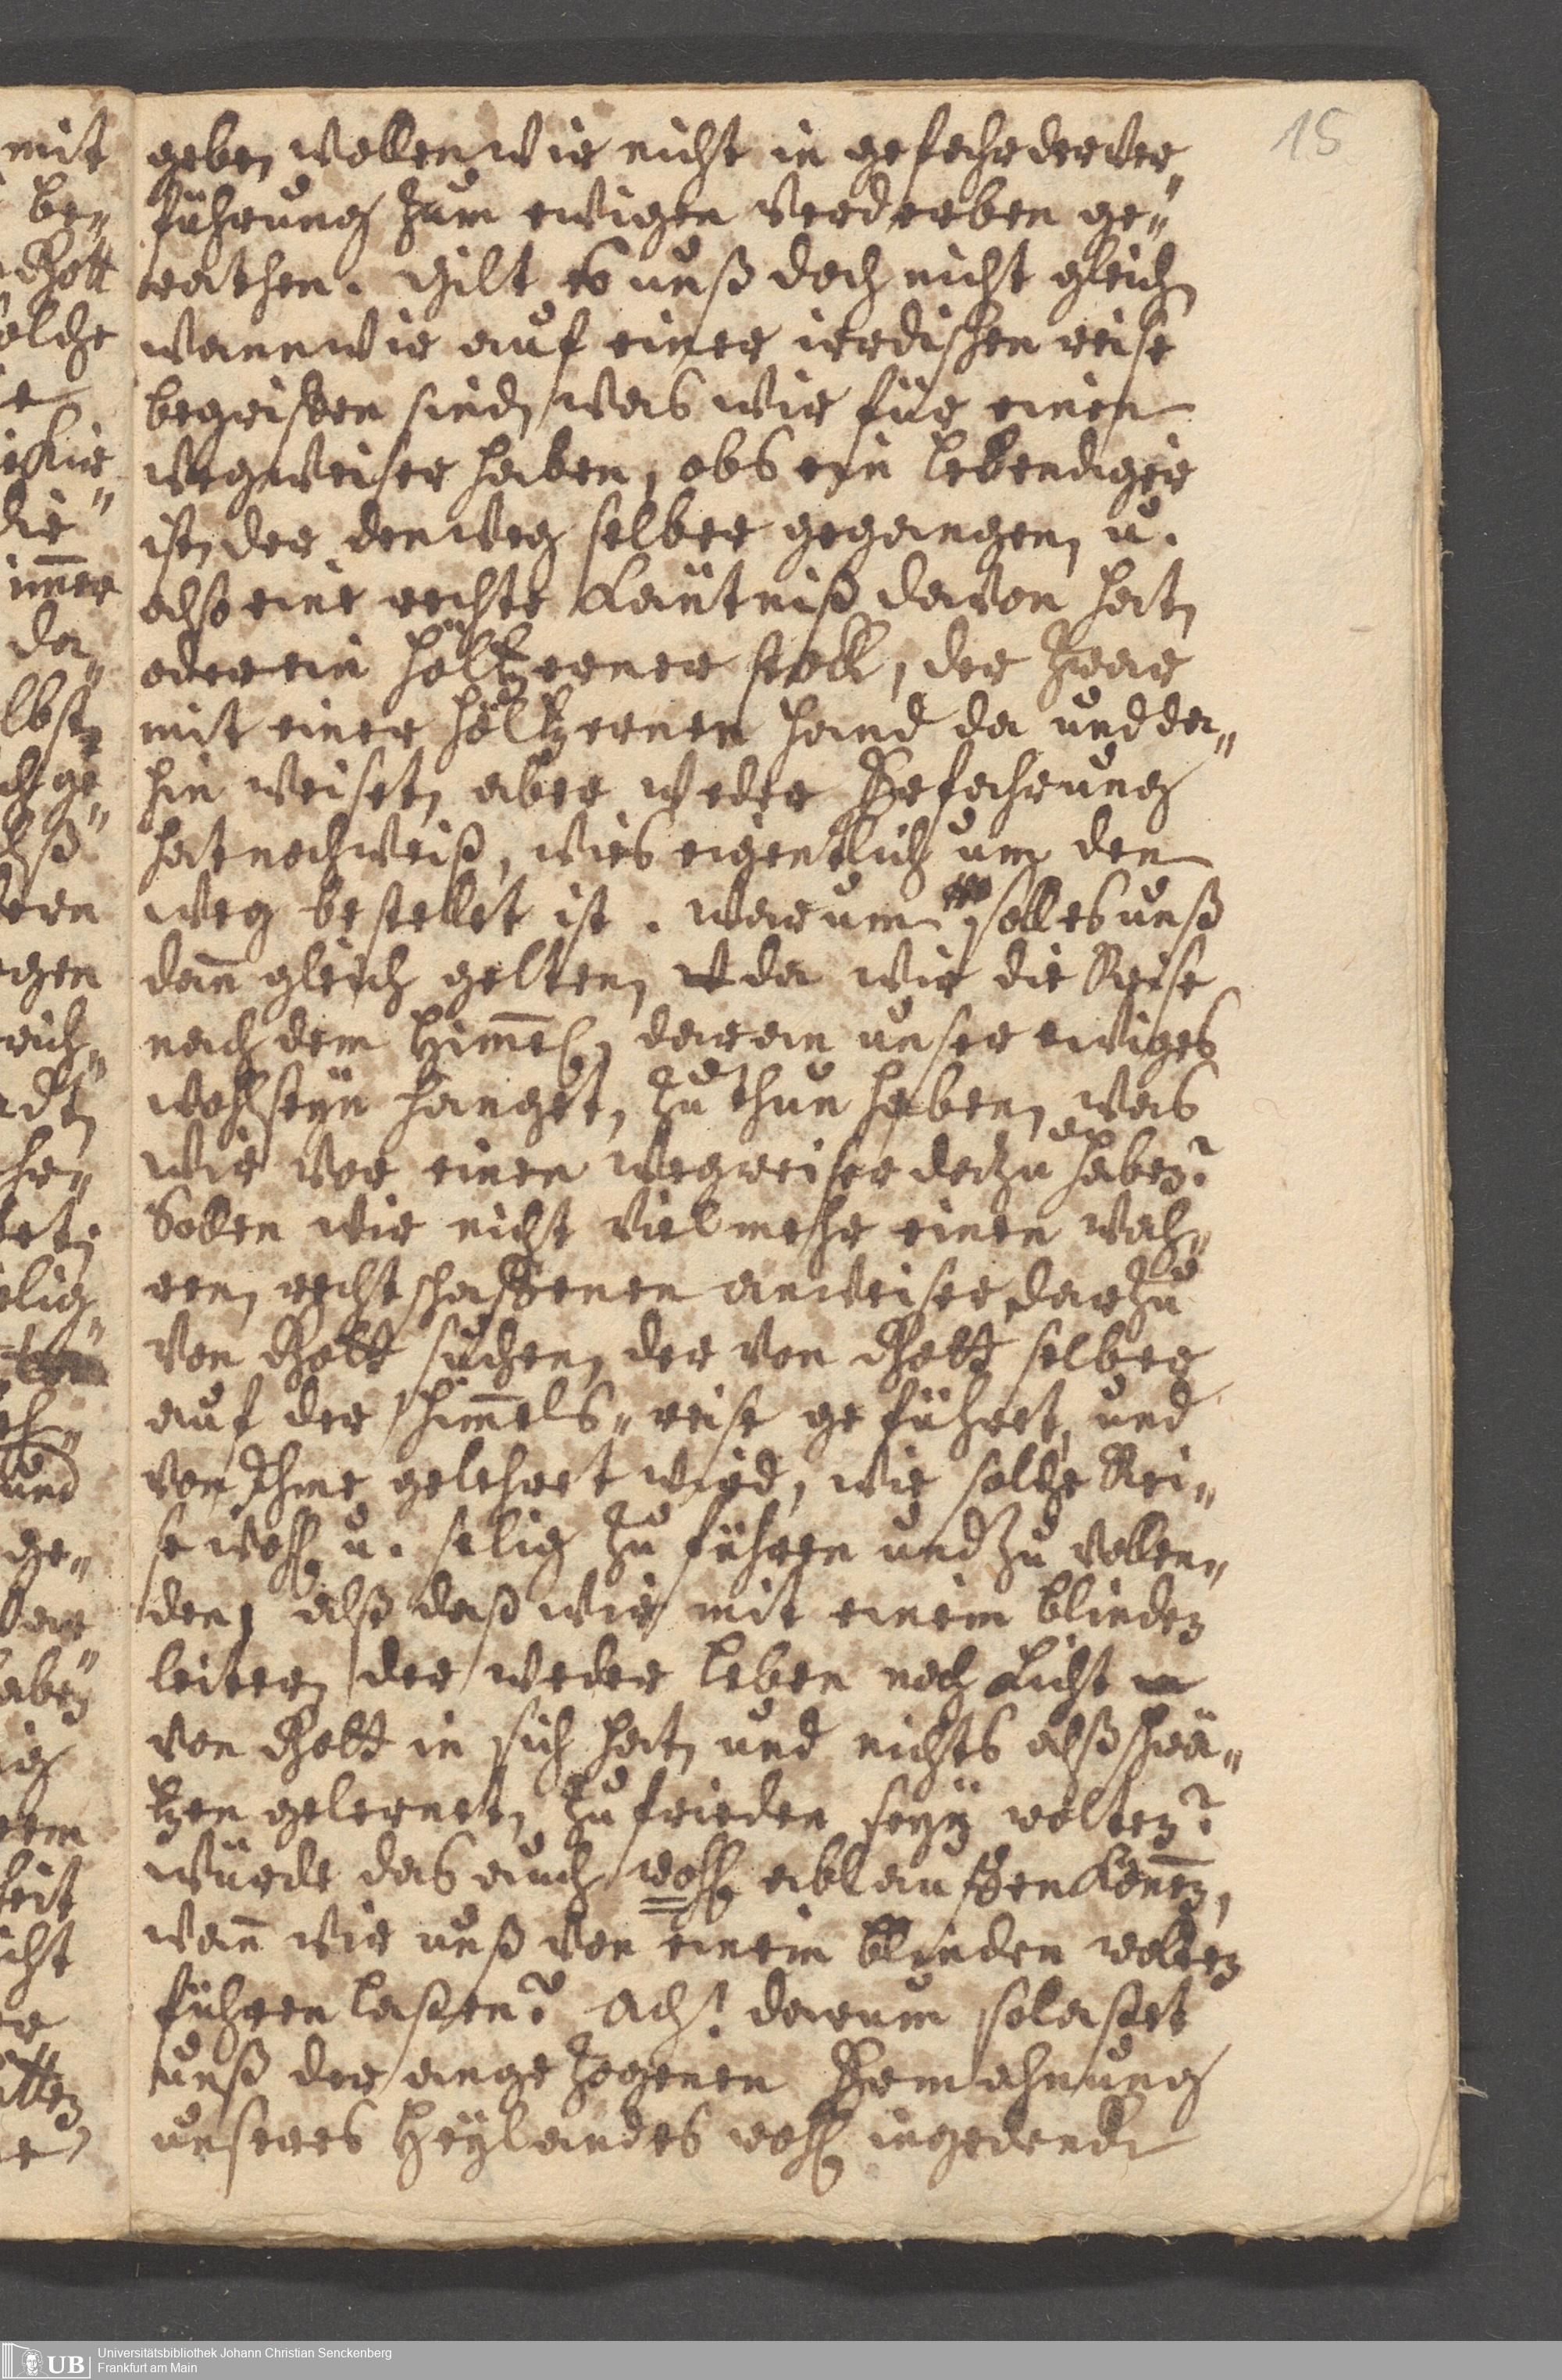 15
geben, wollen wir nicht in gefahr der ver„
führung zum ewigen verderben ge„
rathen. Gilt es unß doch nicht gleich
wann wir auf einer irrdischen reise
begriffen sind, was wir für einen
wegweiser haben, obs ein lebendiger
ist, der den weg selber gegangen, u.
also eine rechte Käntniß davon hat,
oder ein höltzerner stock, der zwar
mit einer höltzernen hand da und da„
hin weiset, aber weder Erfahrung
hat noch weiß, wies eigentlich um den
weg bestellet ist. warum soll es unß
dañ gleich gelten, da wir die Reise
nach dem Him̃el, daran unser ewiges
wohlseyn hanget, zu thun haben, was
wir vor einen wegweiser dazu haben?
Sollen wir nicht vielmehr einen wah„
ren, rechtschaffenen anweiser darzu
von Gott suchen, der von Gott selber
auf der him̃els„reise geführet, und
von Ihme gelehret wird, wie solche Rei„
se wohl u. selig zu führen und zu vollen„
den, alß daß wir mit einem blinden
leiter, der weder leben noch Licht
von Gott in sich hat, und nichts alß schwä„
tzen gelernet, zufrieden seyn wolten?
würde das auch wohl ablauffen könen,
wañ wir unß von einem blinden wolten
führen lassen? Ach! darum so lasset
unß der angezogenen Ermahnung
unseres Heylandes wohl ingedenck
mit
be„
Gott
solche
die
im̃er
da„
und
ge„
UB
Universitätsbibliothek Johann Christian Senckenberg
Frankfurt am Main